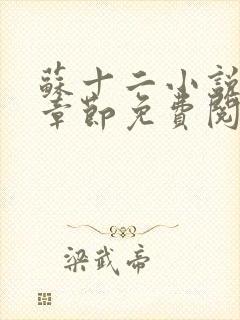 蘇十二小說
章節免費閱
梁武帝